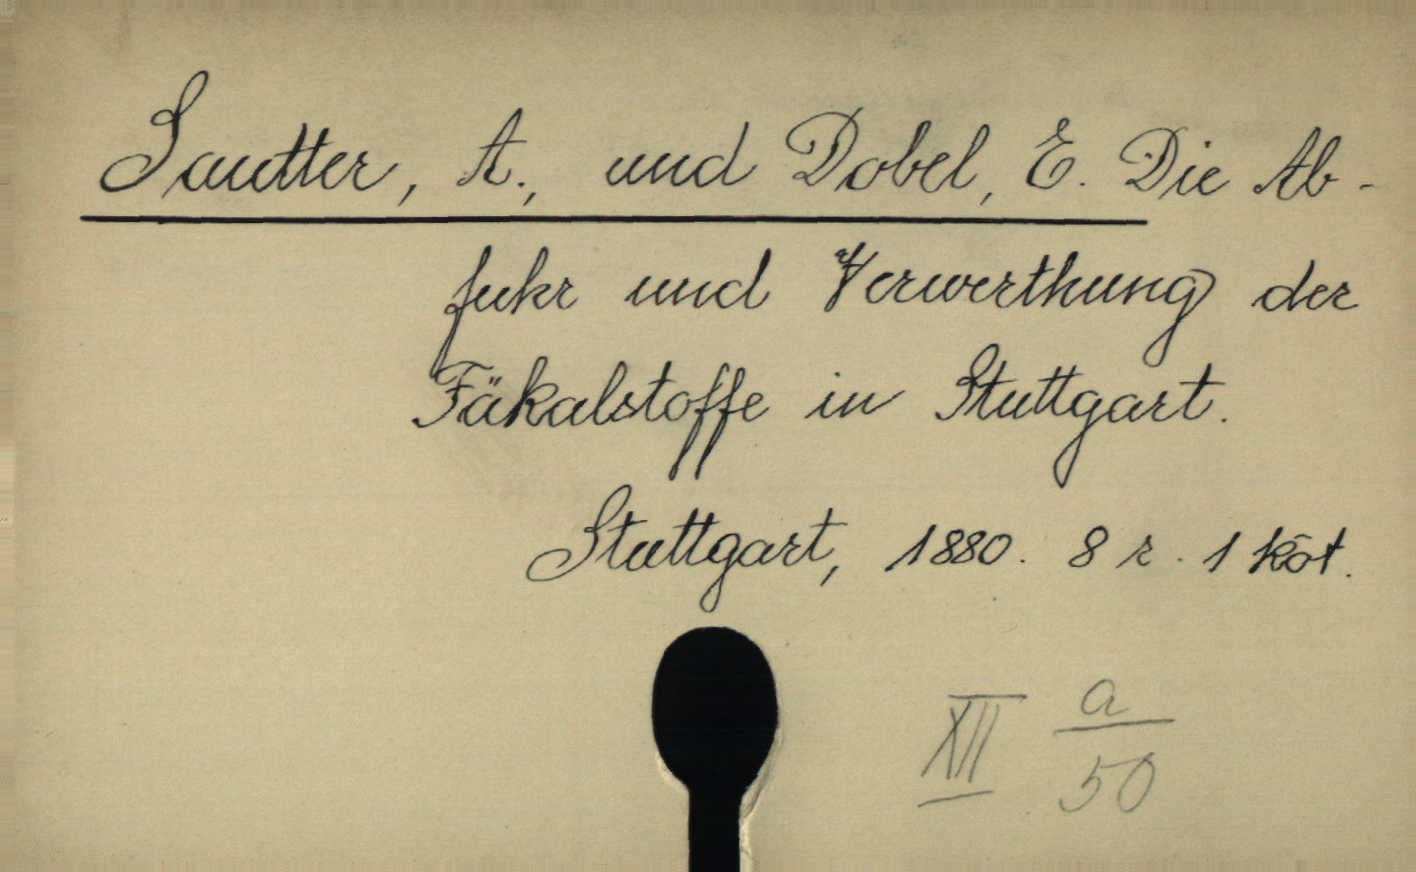 Sautter, A., und Dobel, E. Die Ab-
fuhr und Verwerthung der
Fäkalstoffe in Stuttgart.
Stuttgart, 1880. 8 r. 1 köt.
XII a/50